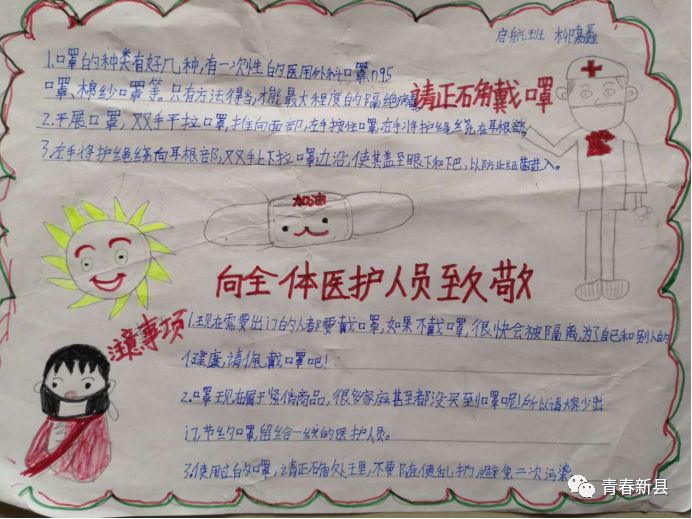 启航班 柳嘉鑫
1.口罩的种类有好几种,有一次性的医用外科口罩.n95
口罩、棉纱口罩等。只有方法得当,才能最大程度的隔绝病毒。
请正确戴口罩
2.平展口罩,双手平拉口罩,推向面部,左手按住口罩,右手将护绳绕在耳根部。
3.左手将护绳绕向耳根部,双手上下拉口罩边沿,使其盖至眼下和下巴,以防止细菌进入。
加油
向全体医护人员致敬
注意事项
1.现在需要出门的人都要戴口罩,如果不戴口罩,很快会被隔离,为了自己和别人的
健康,请佩戴口罩吧!
2.口罩现在属于紧俏商品,很多家庭甚至都没买到口罩呢!所以请大家少出
门,节约口罩,留给一线的医护人员。
3.使用过的口罩,请正确处理,不要随便乱扔,避免二次污染
青春新县